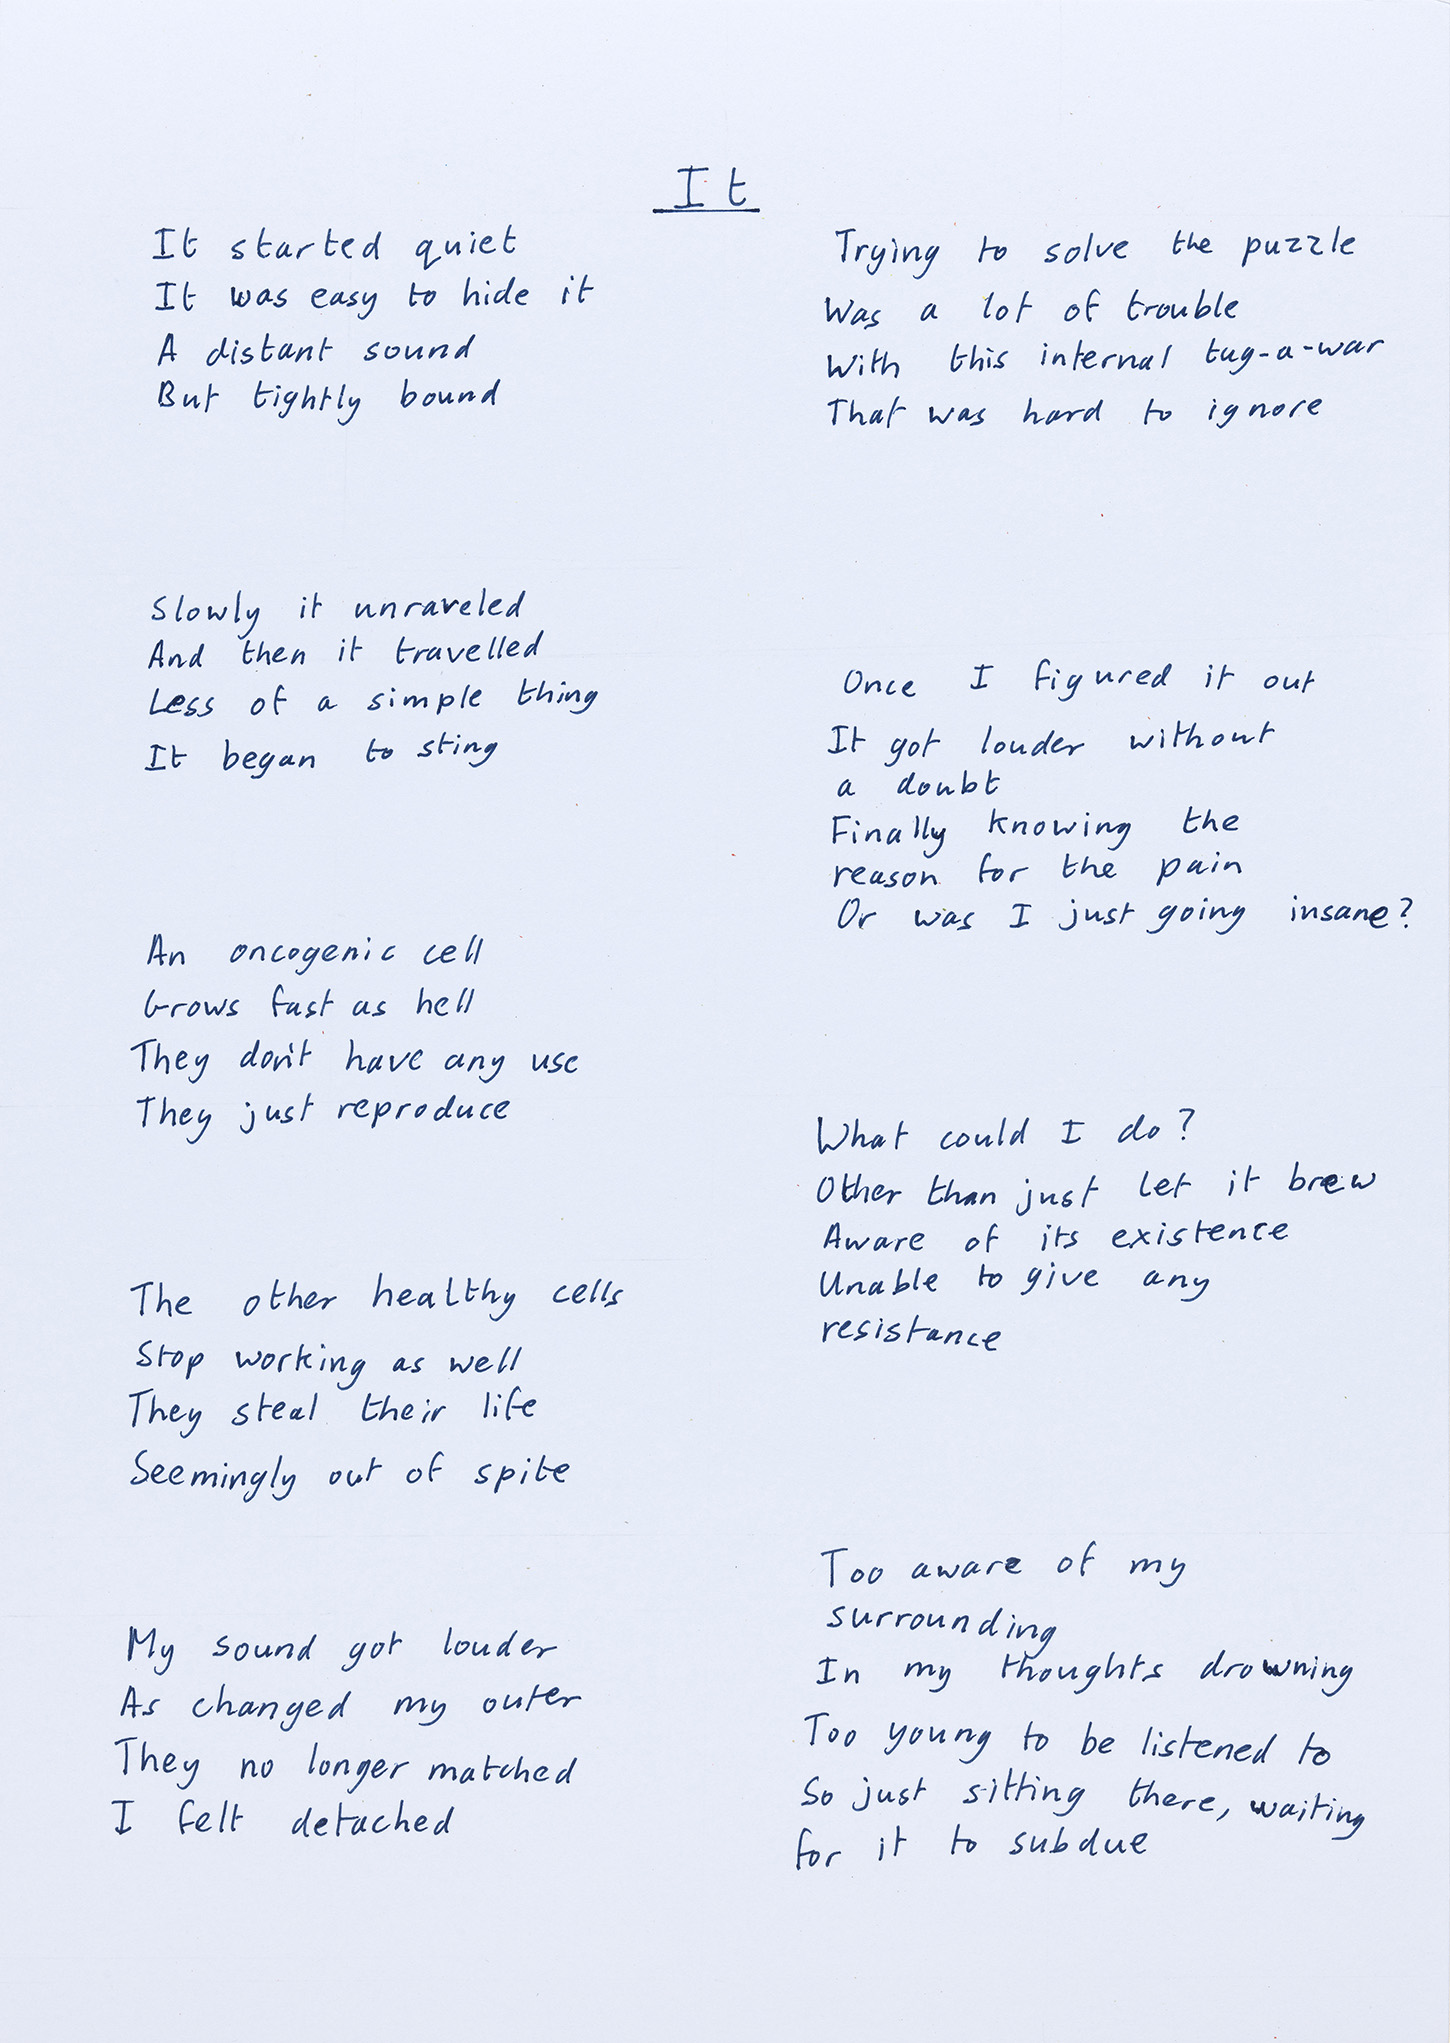 It
It started quiet
It was easy to hide it
A distant sound
But tightly bound
Slowly it unraveled
And then it travelled
Less of a simple thing
It began to sting
An oncogenic cell
Grows fast as hell
They don't have any use
They just reproduce
The other healthy cells
Stop working as well
They steal their life
Seemingly out of spite
My sound got louder
As changed my outer
They no longer matched
I felt detached
Trying to solve the puzzle
Was a lot of trouble
With this internal tug-a-war
That was hard to ignore
Once I figured it out
It got louder without
a doubt
Finally knowing the
reason for the pain
Or was I just going insane?
What could I do?
Other than just let it brew
Aware of its existence
Unable to give any
resistance
Too aware of my
surrounding
In my thoughts drowning
Too young to be listened to
So just sitting there, waiting
for it to subdue